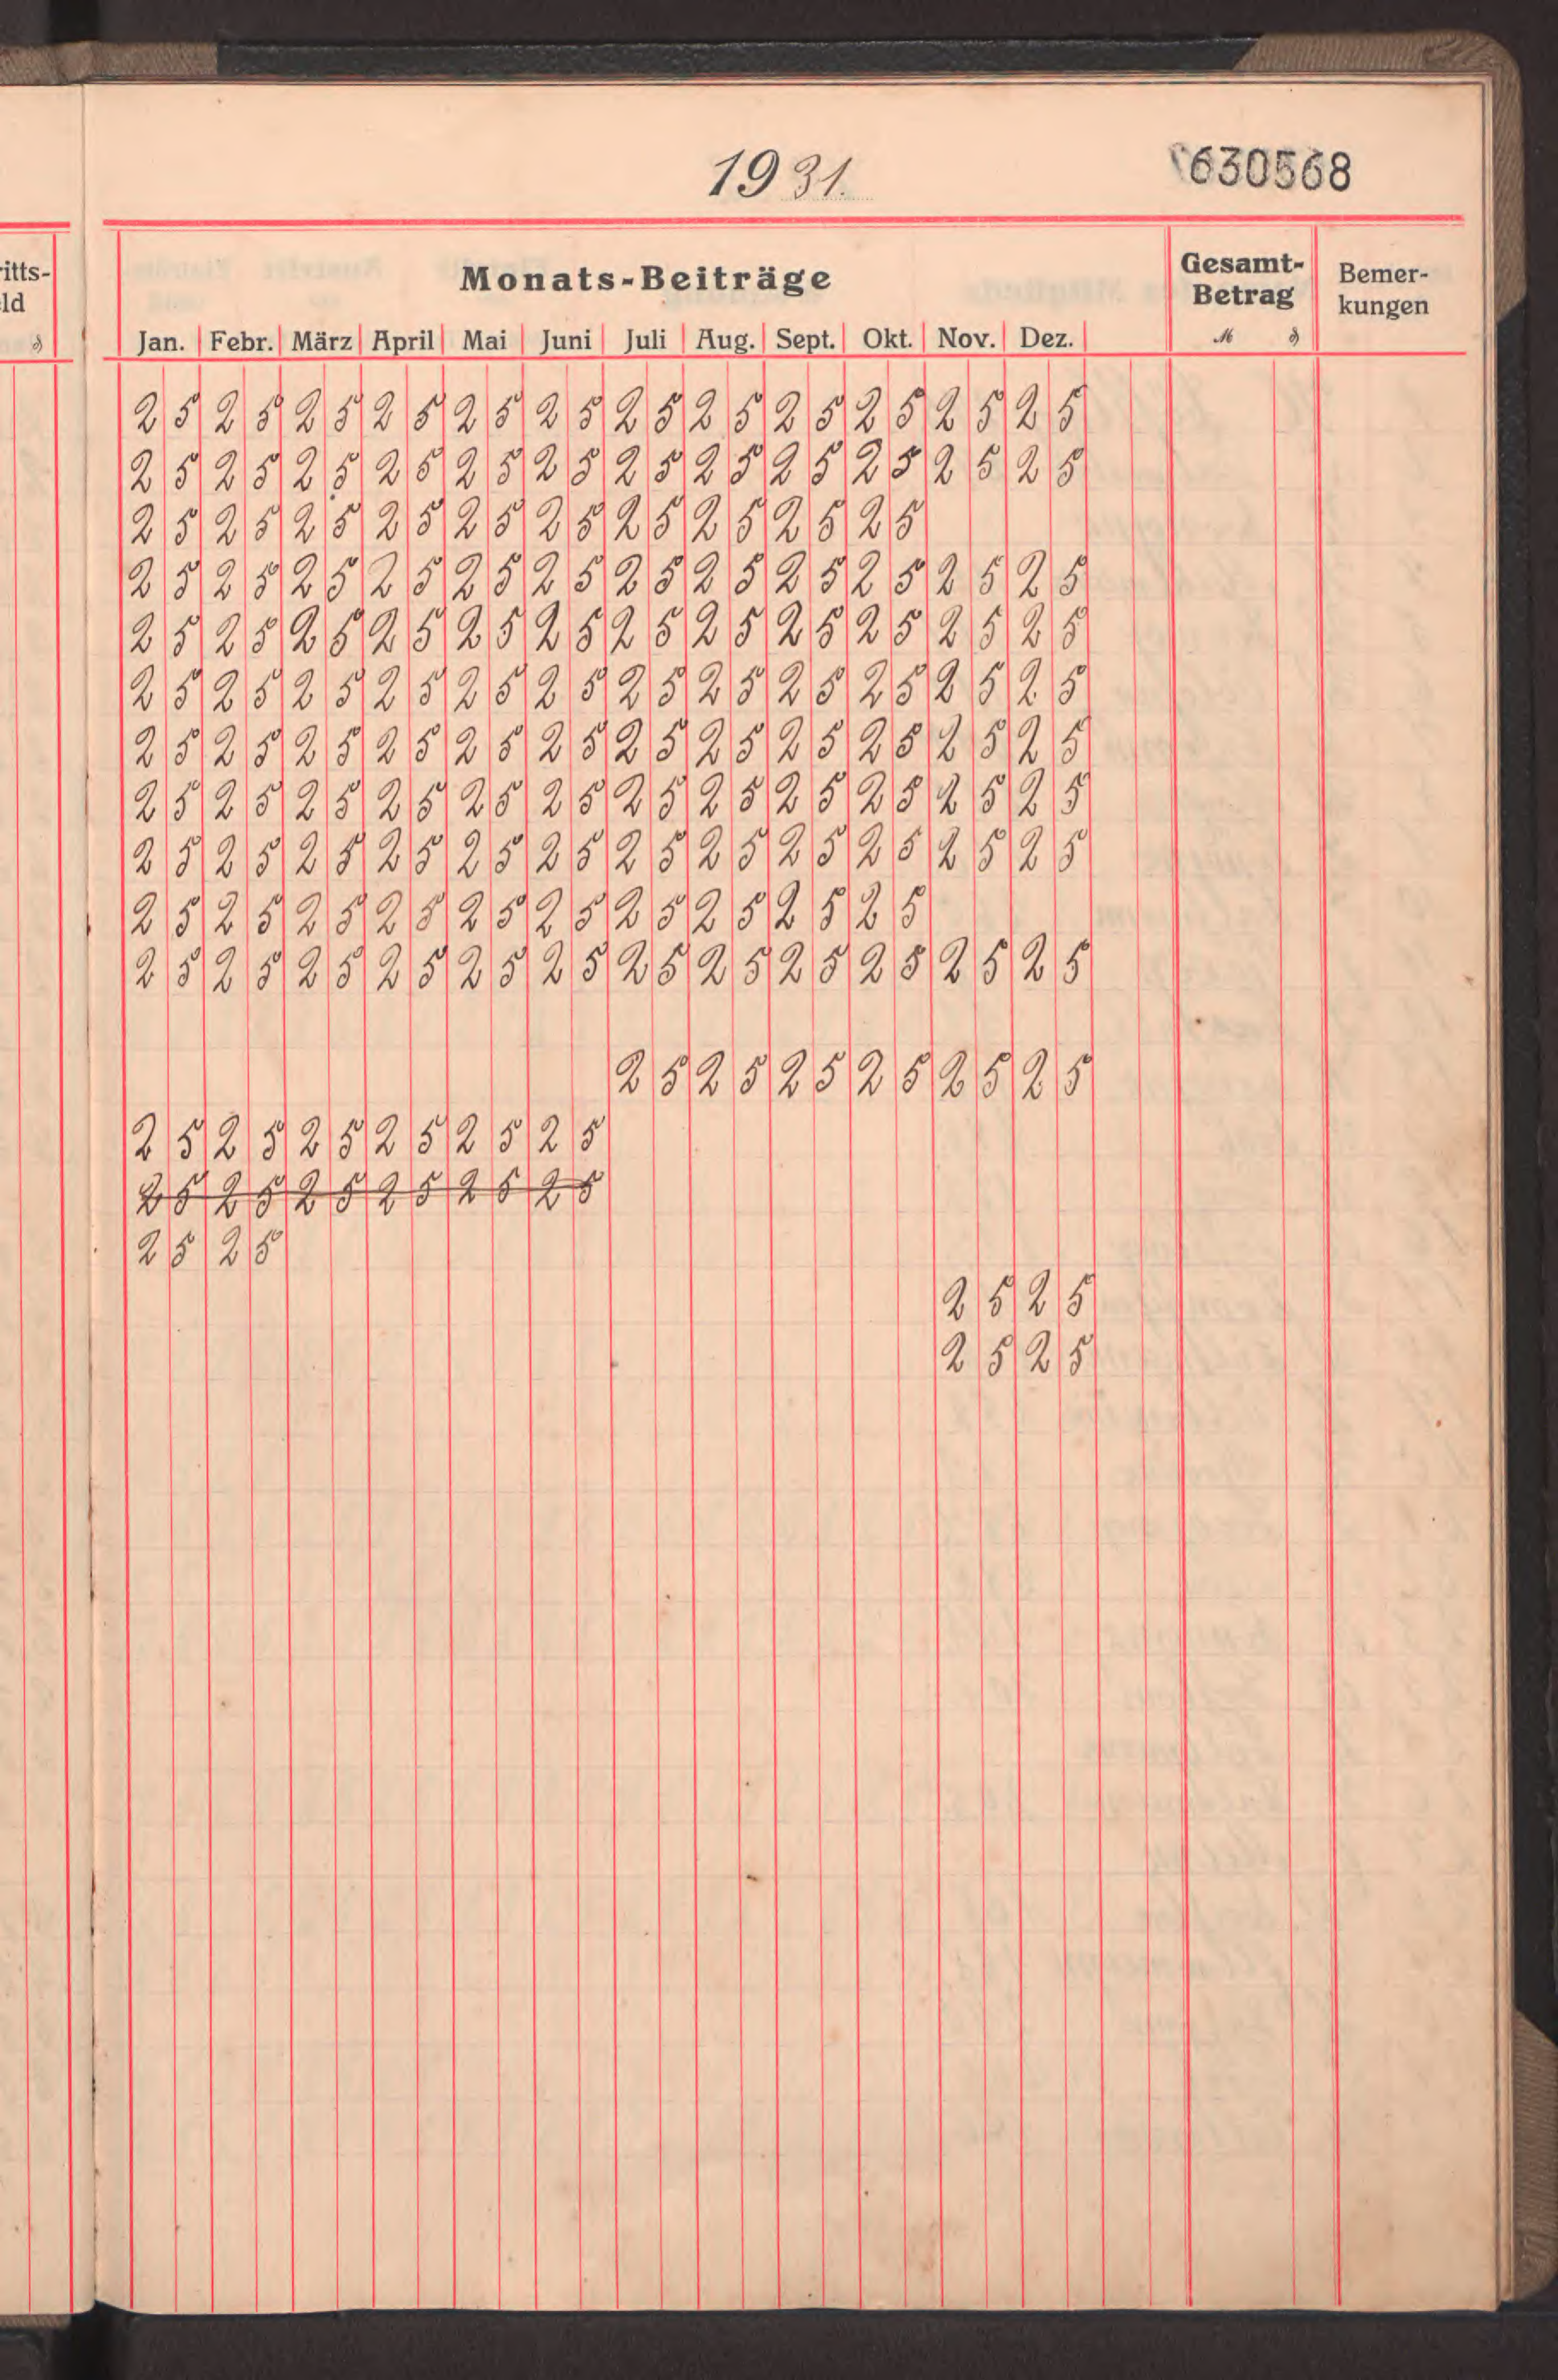 1931.
630568
itts-
ld
₰
Monats-Beiträge
Gesamt-
Betrag
Bemer-
kungen
Jan. Febr. März April Mai Juni Juli Aug. Sept. Okt. Nov. Dez. ℳ ₰
25 25 25 25 25 25 25 25 25 25 25 25
25 25 25 25 25 25 25 25 25 25 25 25
25 25 25 25 25 25 25 25 25 25
25 25 25 25 25 25 25 25 25 25 25 25
25 25 25 25 25 25 25 25 25 25 25 25
25 25 25 25 25 25 25 25 25 25 25 25
25 25 25 25 25 25 25 25 25 25 25 25
25 25 25 25 25 25 25 25 25 25 25 25
25 25 25 25 25 25 25 25 25 25 25 25
25 25 25 25 25 25 25 25 25 25
25 25 25 25 25 25 25 25 25 25 25 25
25 25 25 25 25 25
25 25 25 25 25 25
25 25 25 25 25 25
25 25
25 25
25 25